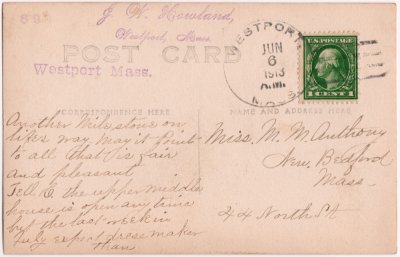 89
J. W. Howland,
Westport, Mass.
POST CARD
Westport Mass.
WESTPORT
JUN
6
1913
A.M.
MASS.
U.S. POSTAGE
1 CENT 1
CORRESPONDENCE HERE
NAME AND ADDRESS HERE
Another Mile stone on
lifes way. May it point
to all that is fair
and pleasant.
Tell C. the upper middle
house is open any time
but the last week in
July expect dressmaker
then
Miss. M. M. Anthony
New. Bedford
Mass.
44 North St